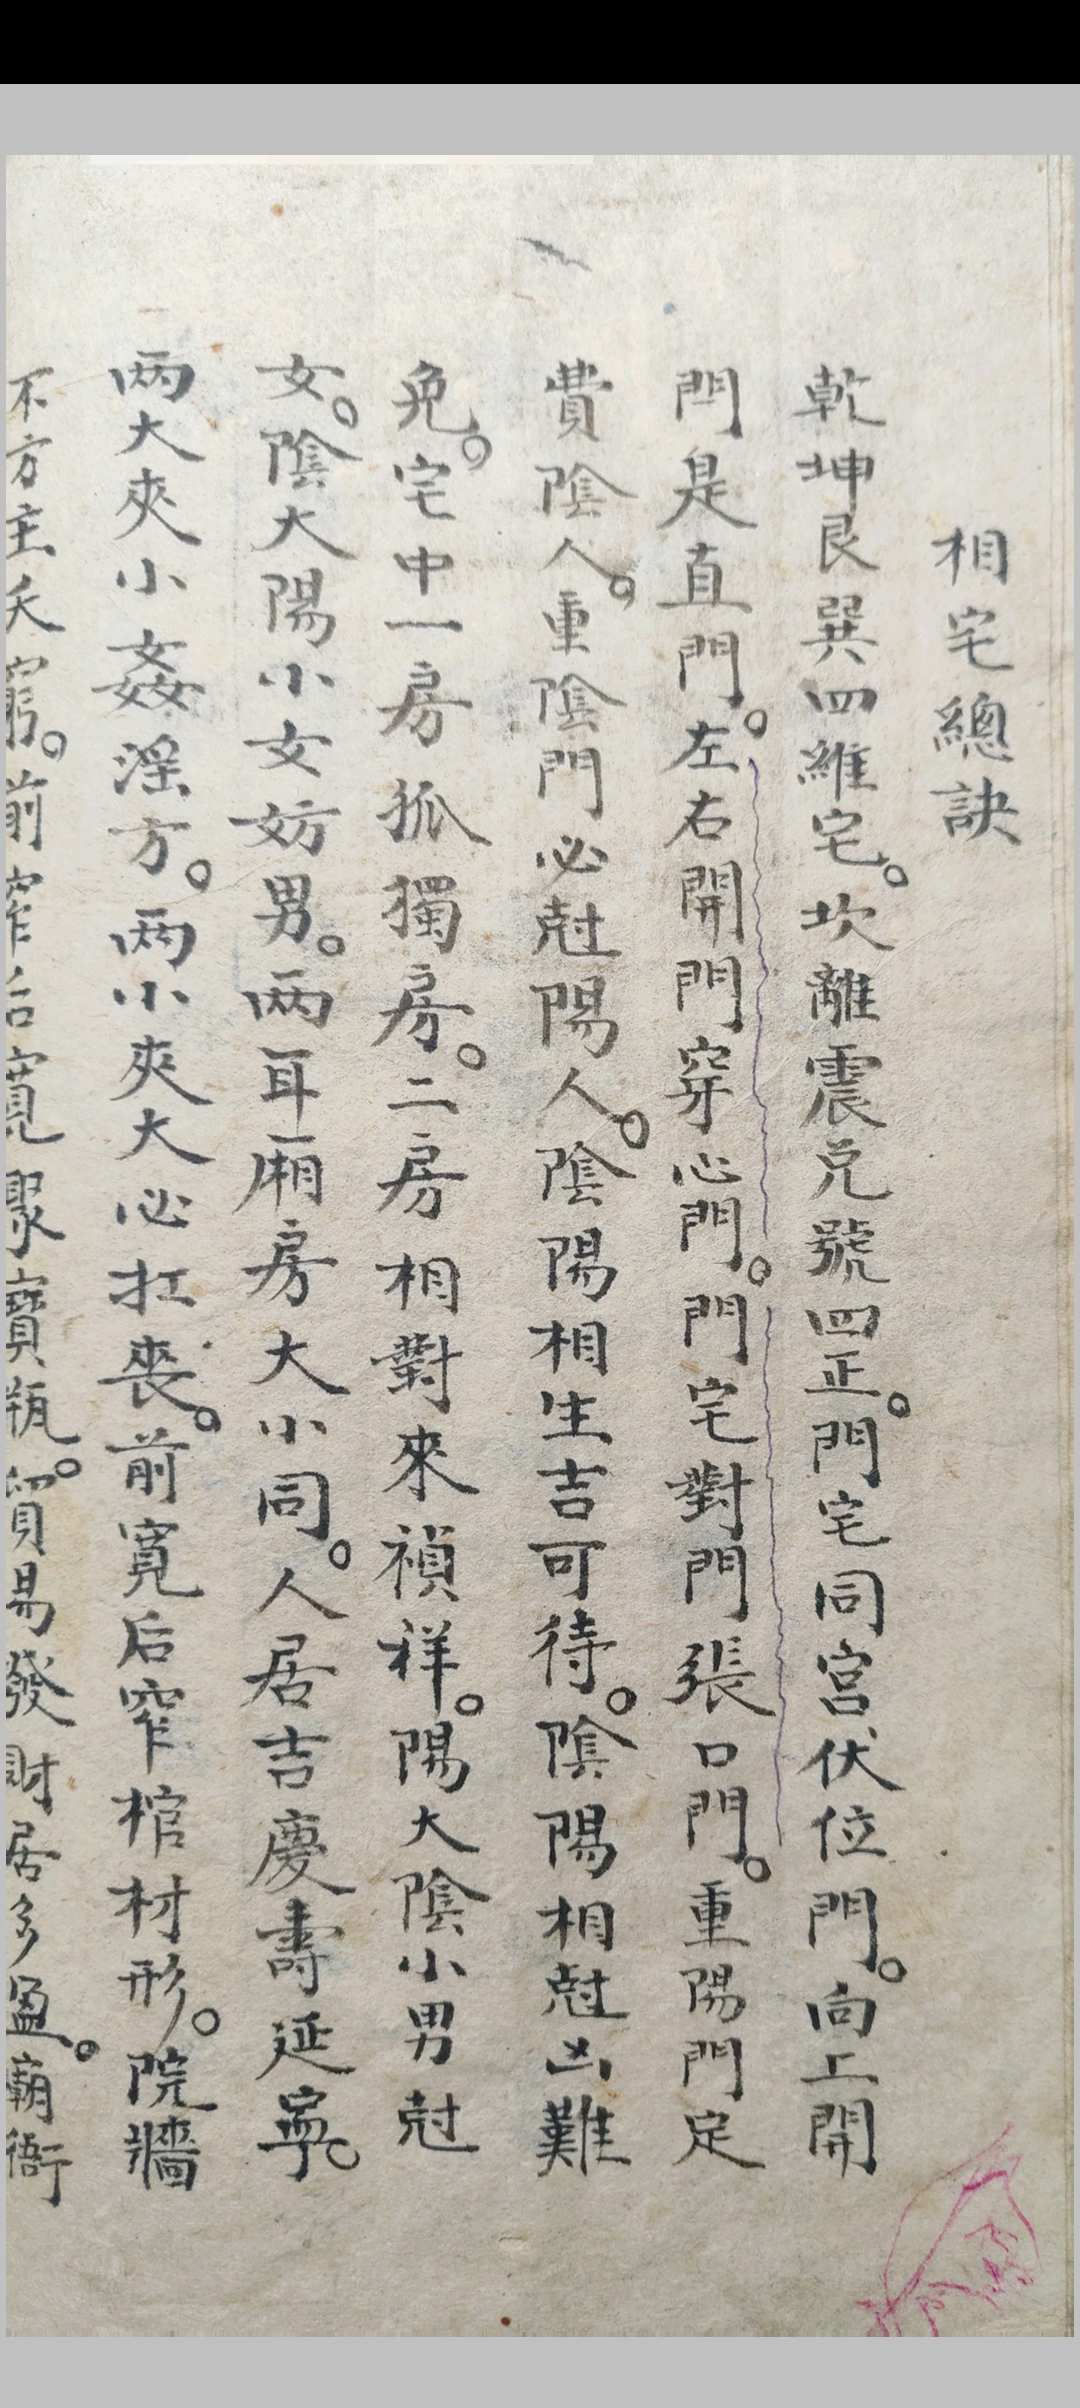 相宅總訣
乾坤艮巽四維宅。坎離震兌號四正。門宅同宮伏位門。向上開
門是直門。左右開門穿心門。門宅對門張口門。重陽門定
費陰人。重陰門必尅陽人。陰陽相生吉可待。陰陽相尅凶難
免。宅中一房孤獨房。二房相對來禎祥。陽大陰小男尅
女。陰大陽小女妨男。两耳厢房大小同。人居吉慶壽延寧。
两大夾小姦淫方。两小夾大必扛喪。前寛后窄棺材形。院牆
不方主夭窮。前窄后寛聚寶瓶。貿易發財居多盈。廟衙